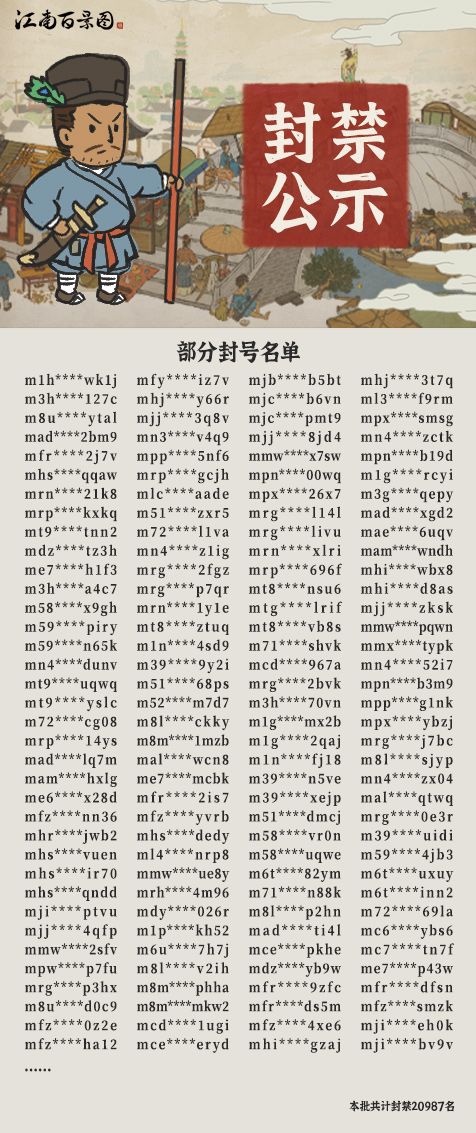 江南百景图
封禁
公示
部分封号名单
m1h****wk1j mfy****iz7v mjb****b5bt mhj****3t7q
m3h****127c mhj****y66r mjc****b6vn ml3****f9rm
m8u****ytal mjj****3q8v mjc****pmt9 mpx****smsg
mad****2bm9 mn3****v4q9 mjj****8jd4 mn4****zctk
mfr****2j7v mpp****5nf6 mmw****x7sw mpn****b19d
mhs****qqaw mrp****gcjh mpn****00wq m1g****rcyi
mrn****21k8 mlc****aade mpx****26x7 m3g****qepy
mrp****kxkq m51****zxr5 mrg****l14l mad****xgd2
mt9****tnn2 m72****l1va mrg****livu mae****6uqv
mdz****tz3h mn4****z1ig mrn****xlri mam****wndh
me7****h1f3 mrg****2fgz mrp****696f mhi****wbx8
m3h****a4c7 mrg****p7qr mt8****nsu6 mhi****d8as
m58****x9gh mrn****1y1e mtg****lrif mjj****zksk
m59****piry mt8****ztuq mt8****vb8s mmw****pqwn
m59****n65k m1n****4sd9 m71****shvk mmx****typk
mn4****dunv m39****9y2i mcd****967a mn4****52i7
mt9****uqwq m51****68ps mrg****2bvk mpn****b3m9
mt9****yslc m52****m7d7 m3h****70vn mpp****g1nk
m72****cg08 m8l****ckky m1g****mx2b mpx****ybzj
mrp****14ys m8m****1mzb m1g****2qaj mrg****j7bc
mad****lq7m mal****wcn8 m1n****fj18 m8l****sjyp
mam****hxlg me7****mcbk m39****n5ve mn4****zx04
me6****x28d mfr****2is7 m39****xejp mal****qtwq
mfz****nn36 mfz****yvrb m51****dmcj mrg****0e3r
mhr****jwb2 mhs****dedy m58****vr0n m39****uidi
mhs****vuen ml4****nrp8 m58****uqwe m59****4jb3
mhs****ir70 mmw****ue8y m6t****82ym m6t****uxuy
mhs****qndd mrh****4m96 m71****n88k m6t****inn2
mji****ptvu mdy****026r m8l****p2hn m72****69la
mjj****4qfp m1p****kh52 mad****ti4l mc6****ybs6
mmw****2sfv m6u****7h7j mce****pkhe mc7****tn7f
mpw****p7fu m8l****v2ih mdz****yb9w me7****p43w
mrg****p3hx m8m****phha mfr****9zfc mfr****dfsn
m8u****d0c9 m8m****mkw2 mfr****ds5m mfz****smzk
mfz****0z2e mcd****1ugi mfz****4xe6 mji****eh0k
mfz****ha12 mce****eryd mhi****gzaj mji****bv9v
······
本批共计封禁20987名